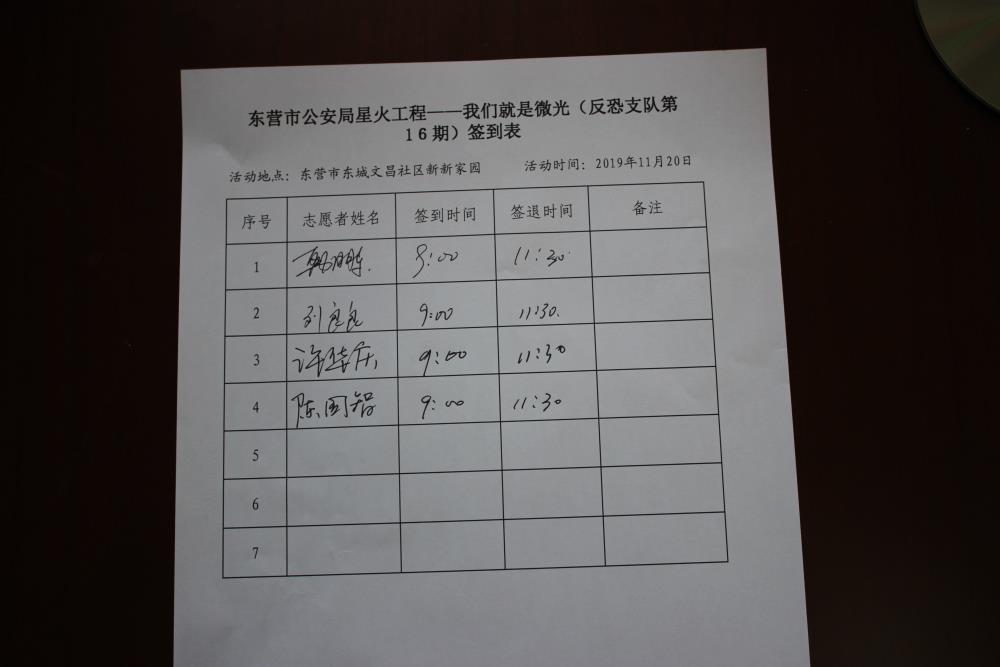 东营市公安局星火工程——我们就是微光（反恐支队第
16期）签到表
活动地点：东营市东城文昌社区新新家园 活动时间：2019年11月20日
序号 志愿者姓名 签到时间 签退时间 备注
1 9:00 11:30
2 刘良良 9:00 11:30
3 9:00 11:30
4 陈国智 9:00 11:30
5
6
7